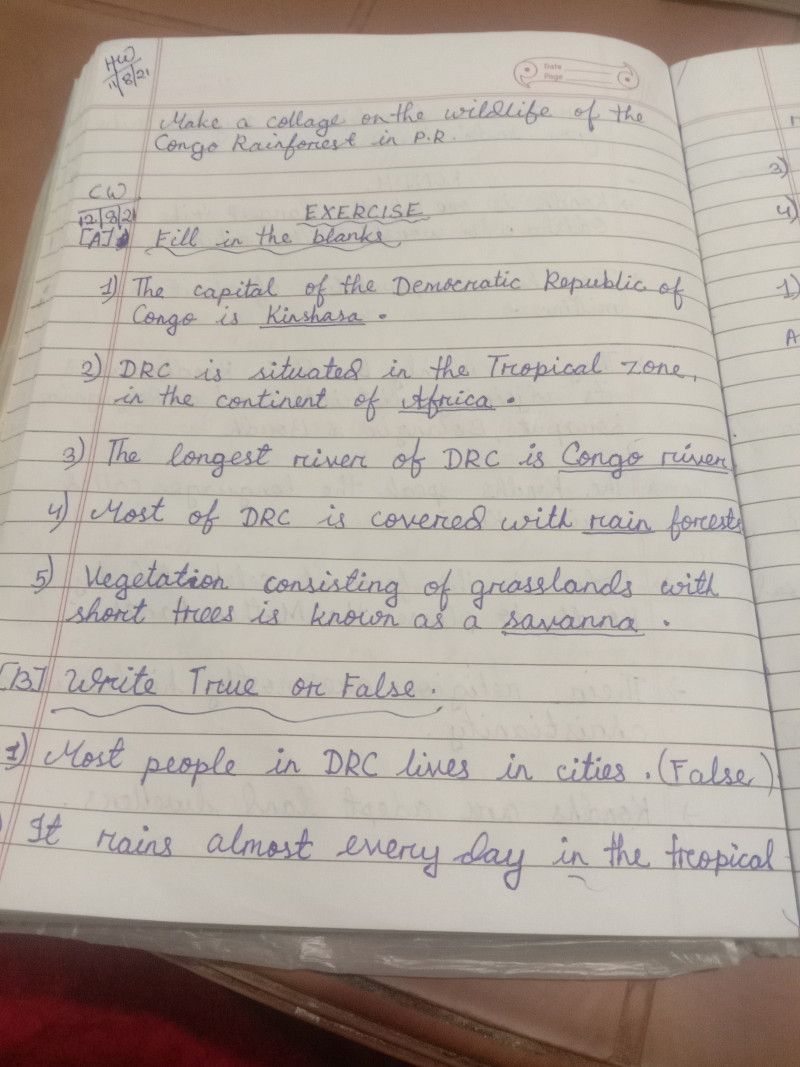 HW
11/8/21
Date
Page
Make a collage on the wildlife of the
Congo Rainforest in P.R.
CW
12/8/21
EXERCISE
[A] Fill in the blanks
1) The capital of the Democratic Republic of
Congo is Kinshasa.
2) DRC is situated in the Tropical zone,
in the continent of Africa.
3) The longest river of DRC is Congo river
4) Most of DRC is covered with rain forests
5) Vegetation consisting of grasslands with
short trees is known as a savanna.
[B] Write True or False.
1) Most people in DRC lives in cities. (False)
It rains almost every day in the tropical
3)
4)
1)
A